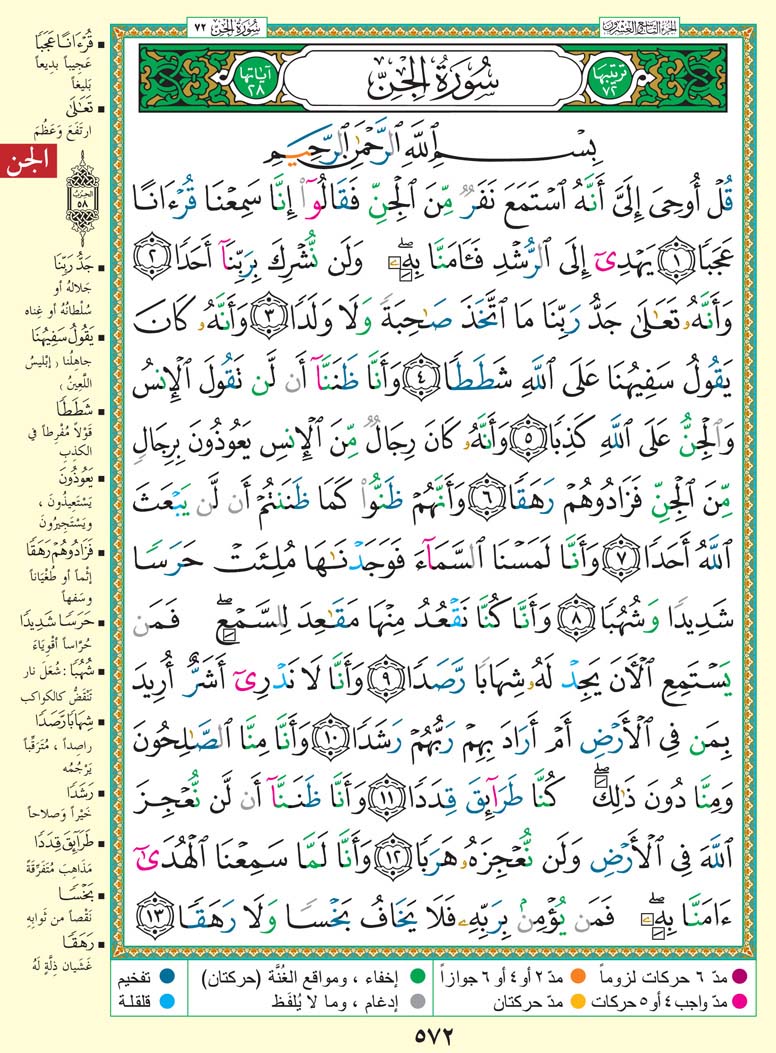 سُورَةُ الجِنّ ٧٢
الجزء التاسع والعشرون
ترتيبها ٧٢
سُورَةُ الجِنّ
آياتها ٢٨
بِسْمِ ٱللَّهِ ٱلرَّحْمَٰنِ ٱلرَّحِيمِ
قُلْ أُوحِيَ إِلَيَّ أَنَّهُ ٱسْتَمَعَ نَفَرٌ مِّنَ ٱلْجِنِّ فَقَالُوٓا۟ إِنَّا سَمِعْنَا قُرْءَانًا
عَجَبًا ١ يَهْدِىٓ إِلَى ٱلرُّشْدِ فَـَٔامَنَّا بِهِۦ ۖ وَلَن نُّشْرِكَ بِرَبِّنَآ أَحَدًا ٢
وَأَنَّهُۥ تَعَٰلَىٰ جَدُّ رَبِّنَا مَا ٱتَّخَذَ صَٰحِبَةً وَلَا وَلَدًا ٣ وَأَنَّهُۥ كَانَ
يَقُولُ سَفِيهُنَا عَلَى ٱللَّهِ شَطَطًا ٤ وَأَنَّا ظَنَنَّآ أَن لَّن تَقُولَ ٱلْإِنسُ
وَٱلْجِنُّ عَلَى ٱللَّهِ كَذِبًا ٥ وَأَنَّهُۥ كَانَ رِجَالٌ مِّنَ ٱلْإِنسِ يَعُوذُونَ بِرِجَالٍ
مِّنَ ٱلْجِنِّ فَزَادُوهُمْ رَهَقًا ٦ وَأَنَّهُمْ ظَنُّوا۟ كَمَا ظَنَنتُمْ أَن لَّن يَبْعَثَ
ٱللَّهُ أَحَدًا ٧ وَأَنَّا لَمَسْنَا ٱلسَّمَآءَ فَوَجَدْنَٰهَا مُلِئَتْ حَرَسًا
شَدِيدًا وَشُهُبًا ٨ وَأَنَّا كُنَّا نَقْعُدُ مِنْهَا مَقَٰعِدَ لِلسَّمْعِ ۖ فَمَن
يَسْتَمِعِ ٱلْـَٔانَ يَجِدْ لَهُۥ شِهَابًا رَّصَدًا ٩ وَأَنَّا لَا نَدْرِىٓ أَشَرٌّ أُرِيدَ
بِمَن فِى ٱلْأَرْضِ أَمْ أَرَادَ بِهِمْ رَبُّهُمْ رَشَدًا ١٠ وَأَنَّا مِنَّا ٱلصَّٰلِحُونَ
وَمِنَّا دُونَ ذَٰلِكَ ۖ كُنَّا طَرَآئِقَ قِدَدًا ١١ وَأَنَّا ظَنَنَّآ أَن لَّن نُّعْجِزَ
ٱللَّهَ فِى ٱلْأَرْضِ وَلَن نُّعْجِزَهُۥ هَرَبًا ١٢ وَأَنَّا لَمَّا سَمِعْنَا ٱلْهُدَىٰٓ
ءَامَنَّا بِهِۦ ۖ فَمَن يُؤْمِنۢ بِرَبِّهِۦ فَلَا يَخَافُ بَخْسًا وَلَا رَهَقًا ١٣
قُرْءَانًا عَجَبًا
عَجِيباً بديعاً
بَليغاً
تَعَٰلَىٰ
ارتَفَعَ وَعَظُمَ
الجن
الحزب ٥٨
جَدُّ رَبِّنَا
جَلالهُ أو
سُلْطانُهُ أو غِناه
يَقُولُ سَفِيهُنَا
جاهلُنا ( إبليسُ
اللّعِينُ )
شَطَطًا
قَوْلاً مُفْرِطاً في
الكذِبِ
يَعُوذُونَ
يَسْتَعِيذُونَ ،
ويَسْتَجِيرُونَ
فَزَادُوهُمْ رَهَقًا
إثْماً أو طُغْيَاناً
وسَفَهاً
حَرَسًا شَدِيدًا
حُرَّاساً أقْوِيَاءَ
شُهُبًا : شُعَلَ نار
تَنْقَضُّ كالكواكب
شِهَابًا رَّصَدًا
راصِداً ، مُتَرَقِّباً
يَرْجُمُه
رَشَدًا
خَيْراً وَصَلاحاً
طَرَآئِقَ قِدَدًا
مَذَاهِبَ مُتَفَرِّقَةً
بَخْسًا
نَقْصاً من ثوابِهِ
رَهَقًا
غَشَيان ذِلَّةٍ لَهُ
مدّ ٦ حركات لزوماً
مدّ ٢ أو ٤ أو ٦ جوازاً
إخفاء ، ومواقع الغُنَّة (حركتان)
تفخيم
مدّ واجب ٤ أو ٥ حركات
مدّ حركتان
إدغام ، وما لا يُلفَظ
قلقلة
٥٧٢